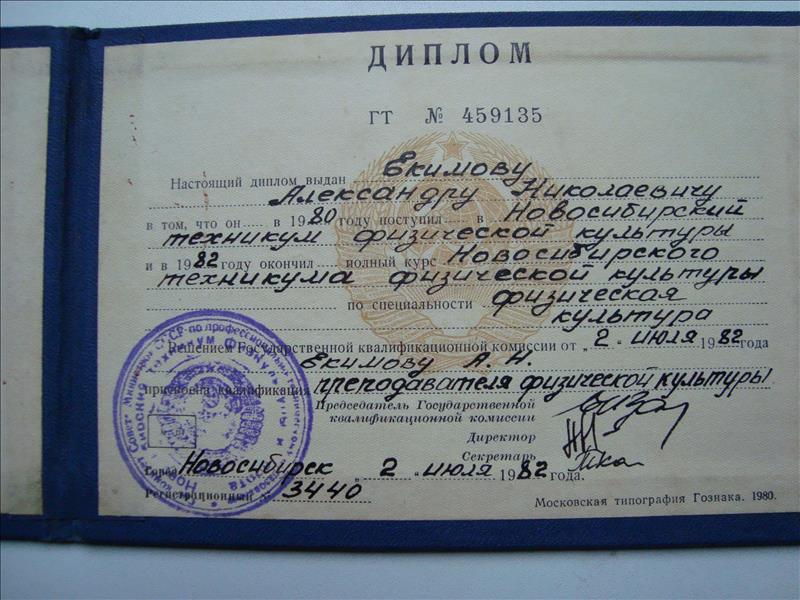 ДИПЛОМ
ГТ № 459135
Настоящий диплом выдан Екимову
Александру Николаевичу
в том, что он в 1980 году поступил в Новосибирский
техникум физической культуры
и в 1982 году окончил полный курс Новосибирского
техникума физической культуры
по специальности физическая
культура
Решением Государственной квалификационной комиссии от „2 июля 1982 года
Екимову А. Н.
присвоена квалификация преподавателя физической культуры
Председатель Государственной
квалификационной комиссии
Директор
Секретарь
Город Новосибирск „2 „ июля 1982 года.
Регистрационный № 3440
Московская типография Гознака. 1980.